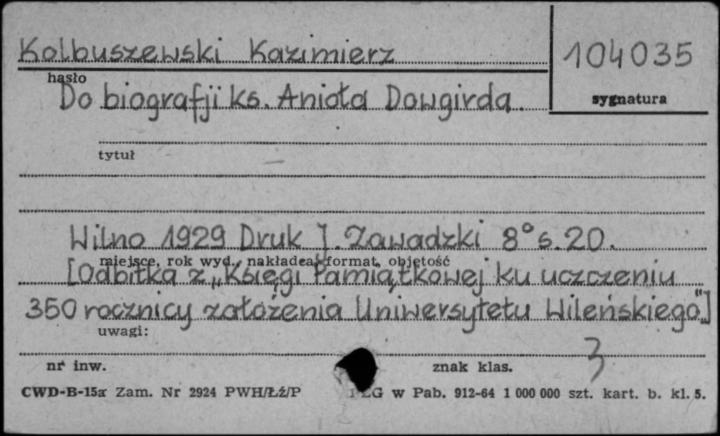 Kolbuszewski Kazimierz
104035
hasło
sygnatura
Do biografji ks. Anioła Dowgirda.
tytuł
Wilno 1929 Druk J. Zawadzki 8° s. 20.
miejsce, rok wyd., nakładca, format, objętość
[Odbitka z „Księgi Pamiątkowej ku uczczeniu
350 rocznicy założenia Uniwersytetu Wileńskiego"]
uwagi:
3
nr inw.
znak klas.
CWD-B-15a Zam. Nr 2924 PWH/Łź/P
w Pab. 912-64 1 000 000 szt. kart. b. kl. 5.